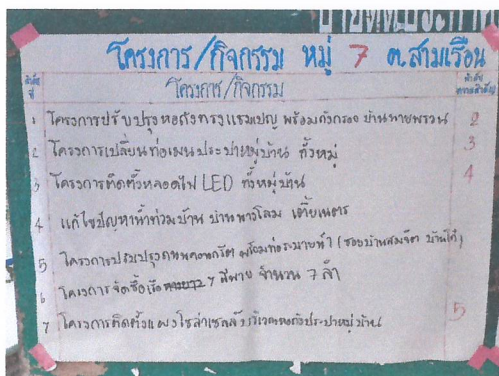 โครงการ/กิจกรรม หมู่ 7 ต.สามเรือน
ลำดับที่ โครงการ/กิจกรรม ลำดับความสำคัญ
1 โครงการปรับปรุงหอถังทรงแชมเปญ พร้อมถังกรอง บ้านนายพรวน 2
2 โครงการเปลี่ยนท่อเมนประปาหมู่บ้าน ทั้งหมู่ 3
3 โครงการติดตั้งหลอดไฟ LED ทั้งหมู่บ้าน 4
4 แก้ไขปัญหาน้ำท่วมบ้าน
5 โครงการปรับปรุงถนนคอนกรีต พร้อมท่อระบายน้ำ (ซอยบ้านสมจิตา บ้านโก๋)
6 โครงการจัดซื้อเรือ 7 ที่พาย จำนวน 7 ลำ
7 โครงการติดตั้งแผงโซล่าเซลล์บริเวณหอถังประปาหมู่บ้าน 5